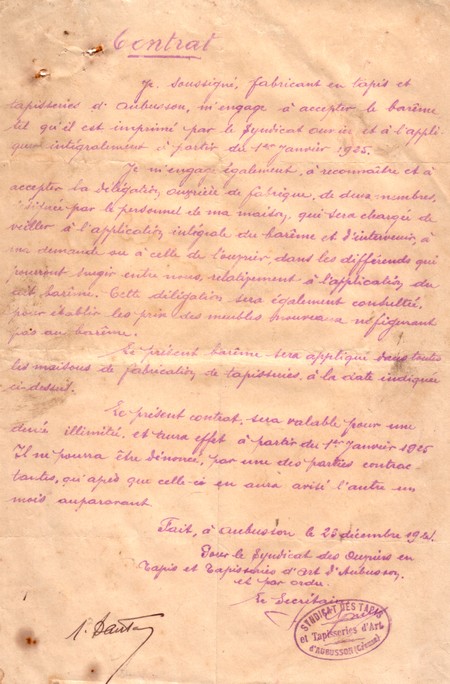 Contrat
Je, soussigné, fabricant en tapis et
tapisseries d'Aubusson, m'engage à accepter le barême
tel qu'il est imprimé par le Syndicat ouvrier et à l'appli-
quer intégralement à partir du 1er Janvier 1925.
Je m'engage également, à reconnaître et à
accepter la délégation ouvrière de fabrique, de deux membres,
par le personnel de ma maison, qui sera chargé de
veiller à l'application intégrale du barême et d'intervenir, à
ma demande ou à celle de l'ouvrier, dans les différends qui
pourront surgir entre nous, relativement à l'application du
dit barême. Cette délégation sera également consultée,
pour établir les prix des meubles nouveaux ne figurant
pas au barême.
Le présent barême sera appliqué dans toutes
les maisons de fabrication de tapisseries, à la date indiquée
ci-dessus.
Le présent contrat, sera valable pour une
durée illimitée, et aura effet à partir du 1er Janvier 1925
Il ne pourra être dénoncé, par une des parties contrac-
tantes, qu'après que celle-ci en aura avisé l'autre un
mois auparavant.
Fait, à Aubusson le 26 décembre 1924.
Pour le Syndicat des Ouvriers en
Tapis et Tapisseries d'Art d'Aubusson.
et par ordre
Le Secrétaire
SYNDICAT DES TAPIS
et Tapisseries d'Art
d'AUBUSSON (Creuse)